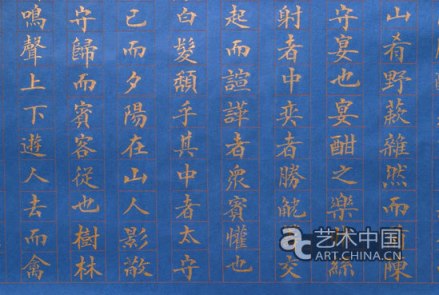 山肴野蔌雜然而陳
守宴也宴酣之樂非絲
射者中奕者勝觥交
起而諠譁者衆賓懽也
白髮頹乎其中者太守
已而夕陽在山人影散
守歸而賓客從也樹林
鳴聲上下遊人去而禽
ac 艺术中国
ART.CHINA.CN